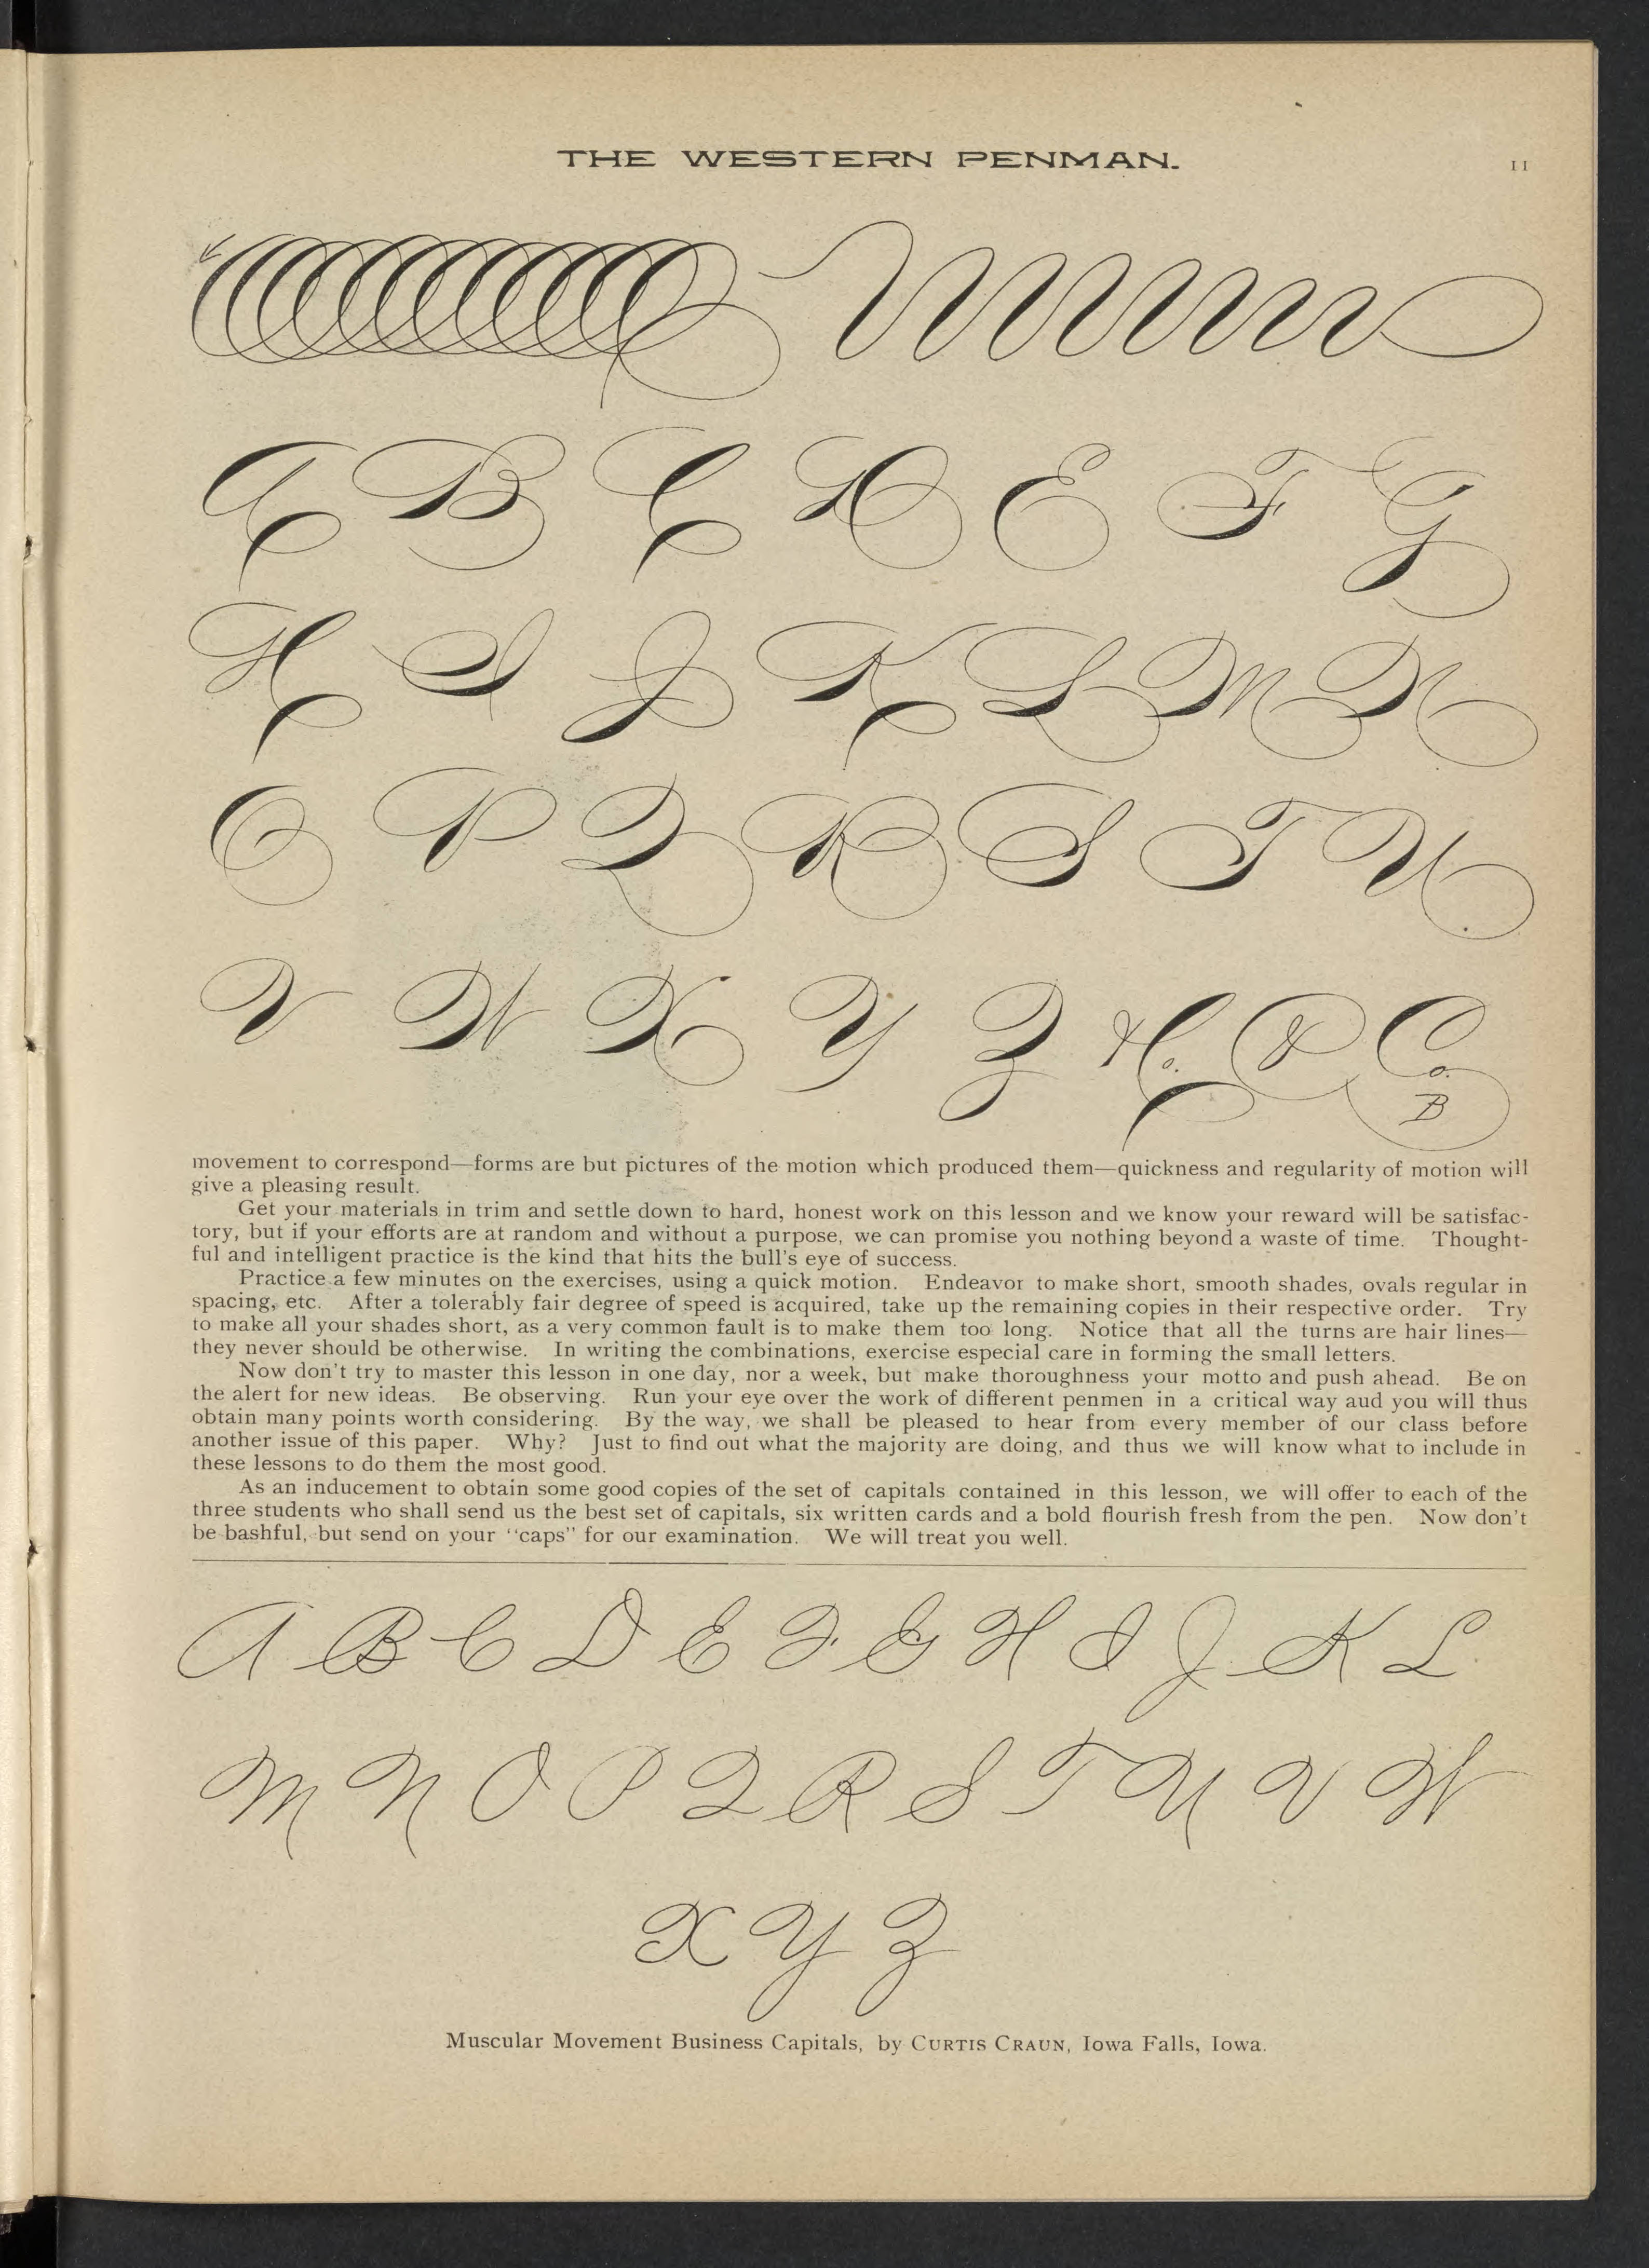 THE WESTERN PENMAN.
11
A B C D E F G
H I J K L M N
O P Q R S T U
V W X Y Z H. o. & C o. B
movement to correspond—forms are but pictures of the motion which produced them—quickness and regularity of motion will
give a pleasing result.
Get your materials in trim and settle down to hard, honest work on this lesson and we know your reward will be satisfac-
tory, but if your efforts are at random and without a purpose, we can promise you nothing beyond a waste of time. Thought-
ful and intelligent practice is the kind that hits the bull's eye of success.
Practice a few minutes on the exercises, using a quick motion. Endeavor to make short, smooth shades, ovals regular in
spacing, etc. After a tolerably fair degree of speed is acquired, take up the remaining copies in their respective order. Try
to make all your shades short, as a very common fault is to make them too long. Notice that all the turns are hair lines—
they never should be otherwise. In writing the combinations, exercise especial care in forming the small letters.
Now don't try to master this lesson in one day, nor a week, but make thoroughness your motto and push ahead. Be on
the alert for new ideas. Be observing. Run your eye over the work of different penmen in a critical way aud you will thus
obtain many points worth considering. By the way, we shall be pleased to hear from every member of our class before
another issue of this paper. Why? Just to find out what the majority are doing, and thus we will know what to include in
these lessons to do them the most good.
As an inducement to obtain some good copies of the set of capitals contained in this lesson, we will offer to each of the
three students who shall send us the best set of capitals, six written cards and a bold flourish fresh from the pen. Now don't
be bashful, but send on your "caps" for our examination. We will treat you well.
A B C D E F G H I J K L
M N O P Q R S T U V W
X Y Z
Muscular Movement Business Capitals, by CURTIS CRAUN, Iowa Falls, Iowa.